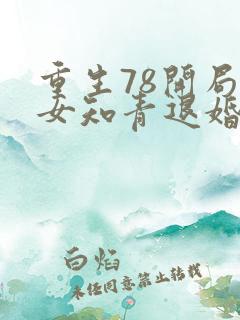 重生78开局
女知青退婚
白焰
未经同意禁止转载